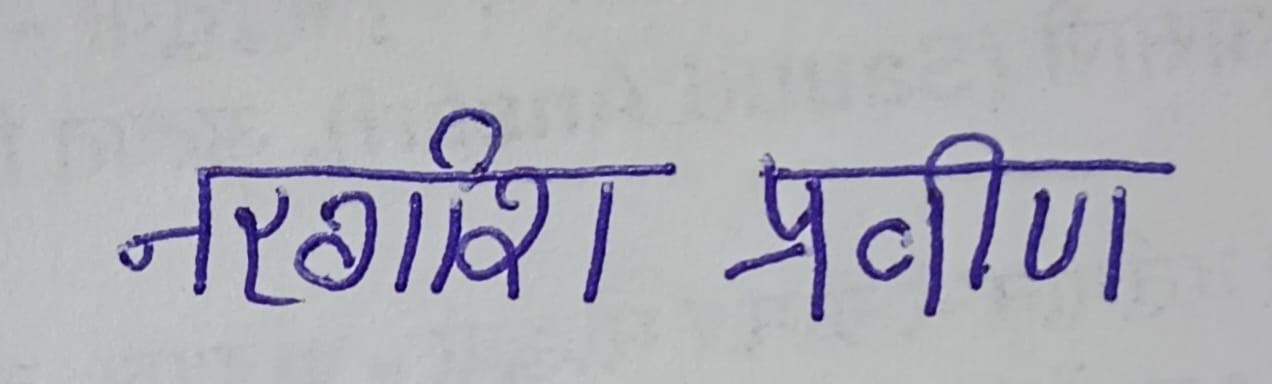 नरगिश प्रवीण